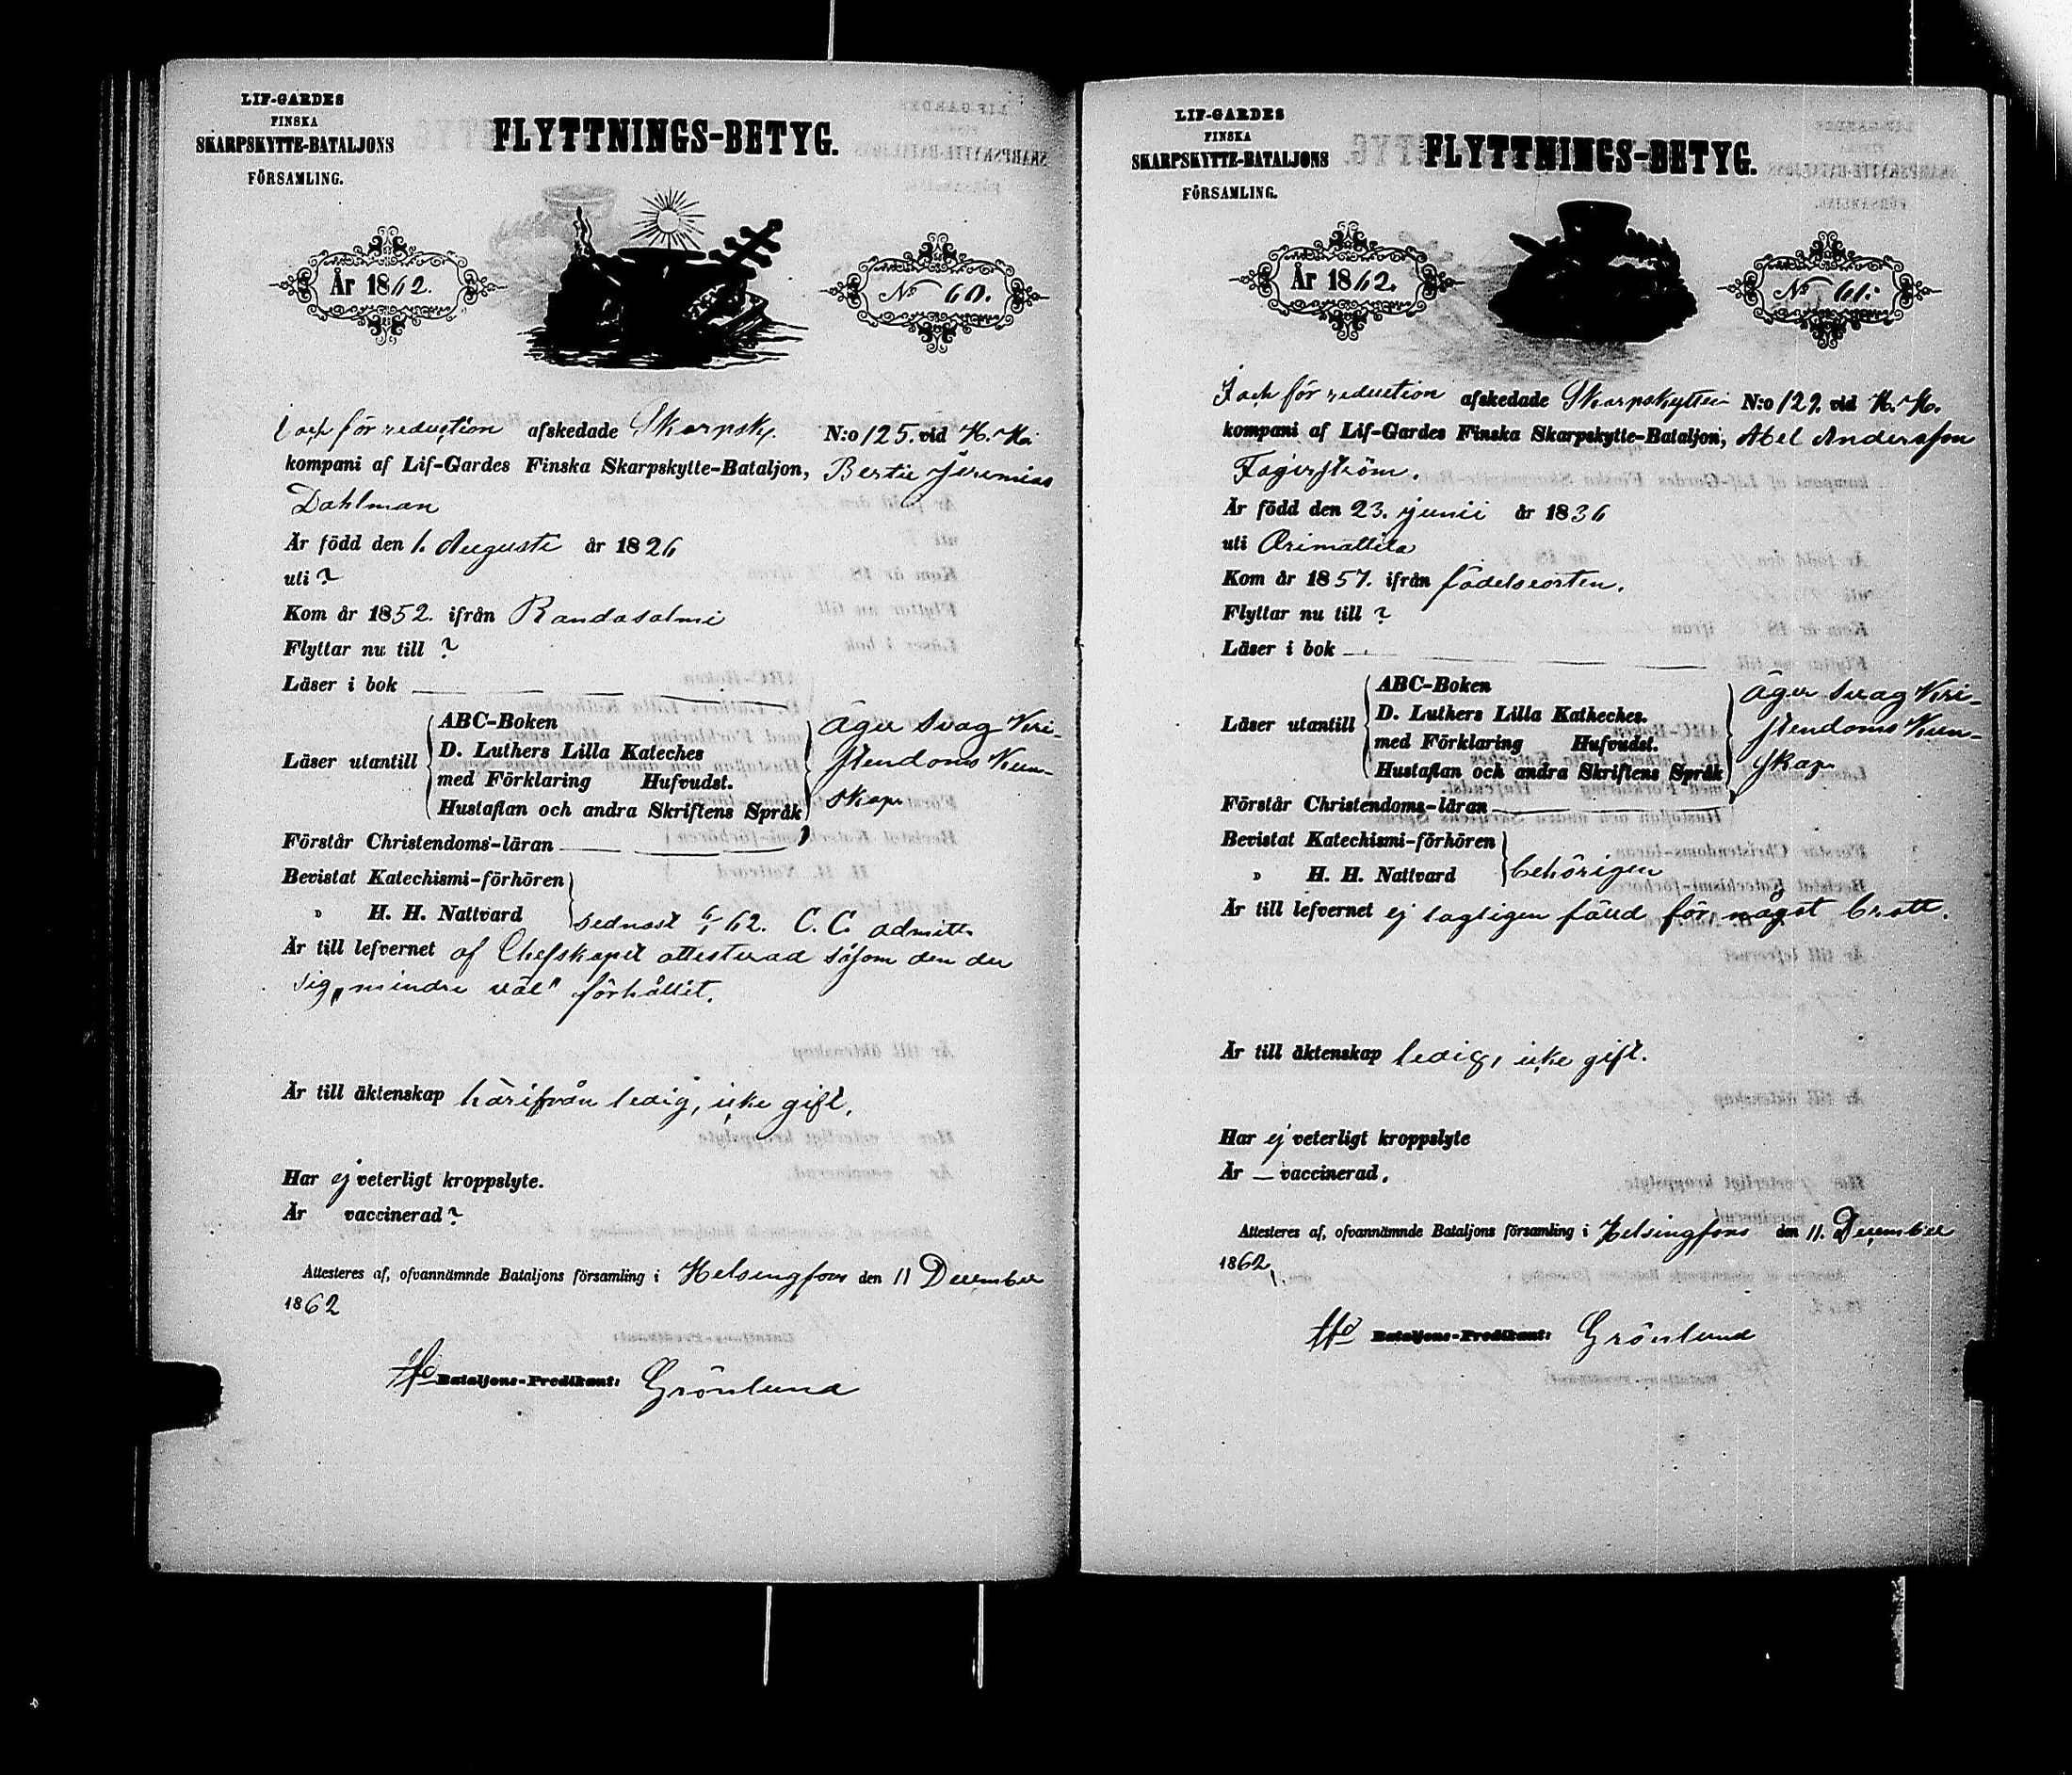 LIF-GARDES
FINSKA
SKARPSKYTTE-BATALJONS
FÖRSAMLING.
FLYTTNINGS-BETYG.
År 1862.
No 60.
I och för reduction afskedade Skarpsky. N:o 125. vid K. K.
kompani af Lif-Gardes Finska Skarpskytte-Bataljon, Bertil Jeremias
Dahlman
Är född den 1. Augusti år 1826
uti ?
Kom år 1852. ifrån Randasalmi
Flyttar nu till ?
Läser i bok
Läser utantill
ABC-Boken
D. Luthers Lilla Kateches
med Förklaring Hufvudst.
Hustaflan och andra Skriftens Språk
äger svag Kri-
stendoms Kun-
skap
Förstår Christendoms-läran
Bevistat Katechismi-förhören
" H. H. Nattvard
sednast 6/1 62. C. C. admitt.
Är till lefvernet af Chefskapet attesterad såsom den der
sig „mindre väl" förhållit.
Är till äktenskap härifrån ledig, icke gift.
Har ej veterligt kroppslyte.
Är vaccinerad ?
Attesteres af, ofvannämnde Bataljons församling i Helsingfors den 11 December
1862
Bataljons-Predikant: Grönlund
LIF-GARDES
FINSKA
SKARPSKYTTE-BATALJONS
FÖRSAMLING.
FLYTTNINGS-BETYG.
År 1862.
No 61.
I och för reduction afskedade Skarpskytten N:o 129. vid K. K.
kompani af Lif-Gardes Finska Skarpskytte-Bataljon, Abel Andersson
Fagerström.
Är född den 23. junii år 1836
uti Orimattila
Kom år 1857. ifrån födelseorten.
Flyttar nu till ?
Läser i bok
Läser utantill
ABC-Boken
D. Luthers Lilla Katheches.
med Förklaring Hufvudst.
Hustaflan och andra Skriftens Språk
äger svag Kri-
stendoms Kun-
skap
Förstår Christendoms-läran
Bevistat Katechismi-förhören
" H. H. Nattvard
behörigen
Är till lefvernet ej lagligen fälld för något brott.
Är till äktenskap ledig, icke gift.
Har ej veterligt kroppslyte
Är — vaccinerad.
Attesteres af, ofvannämnde Bataljons församling i Helsingfors den 11. December
1862.
Bataljons-Predikant: Grönlund